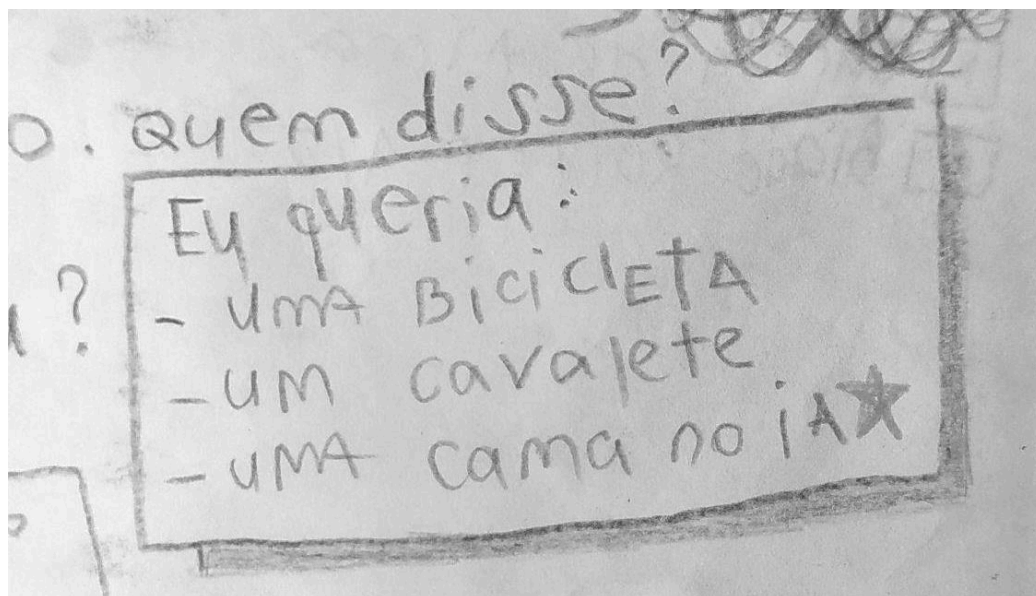 o. Quem disse?
Eu queria:
- uma BiciclETA
?
- um cavalete
- uma cama no iA